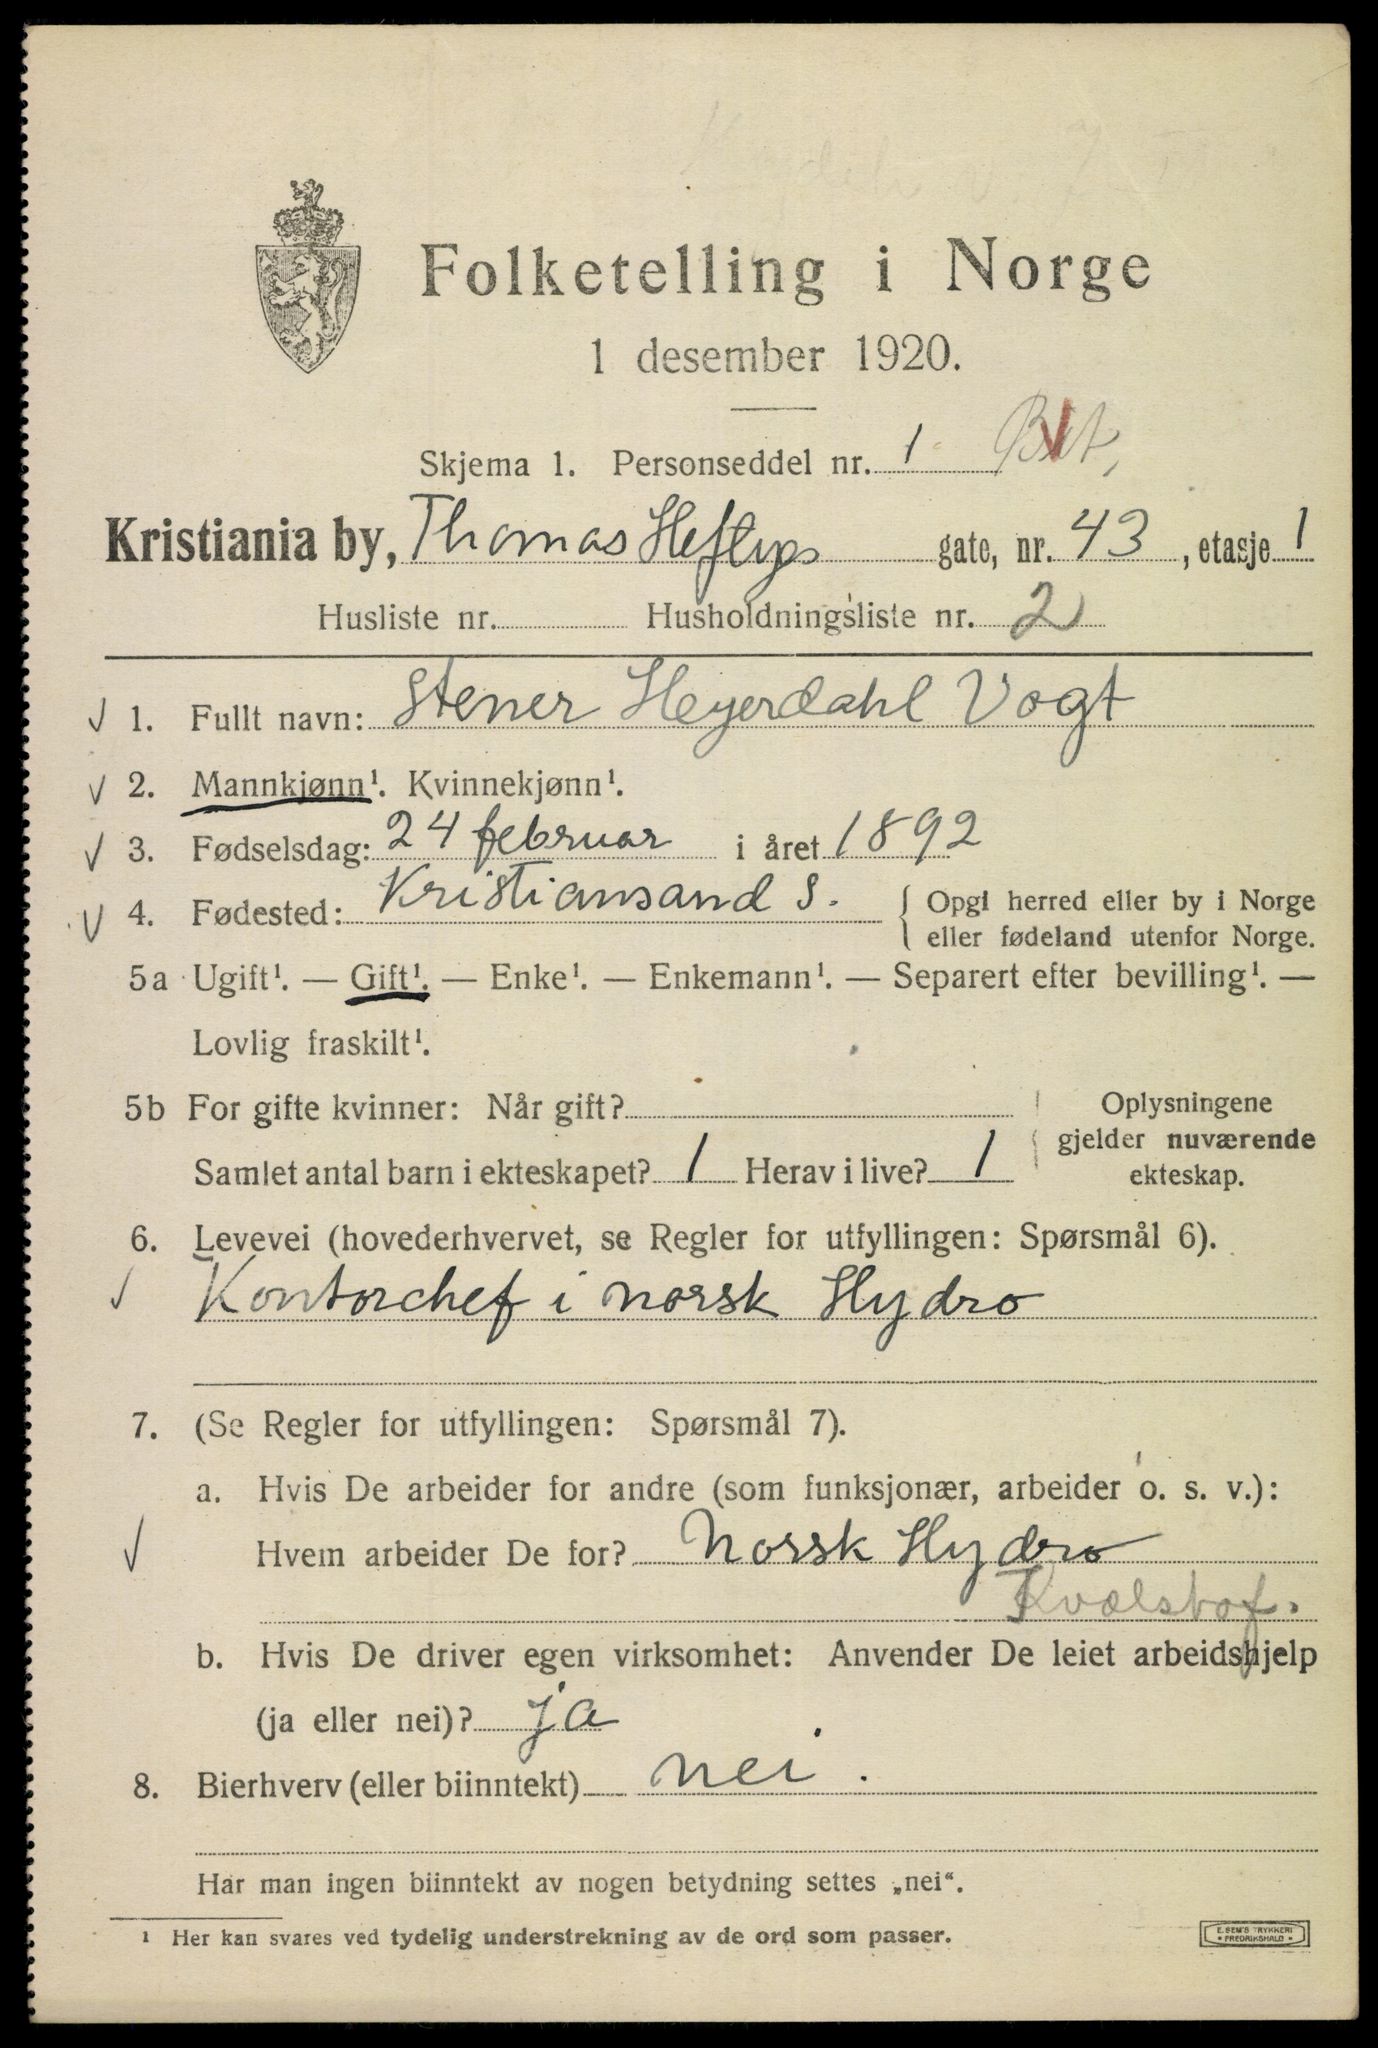 Folketelling i Norge
1 desember 1920.
Skjema 1. Personseddel nr. 1
Kristiania by, Thomas Heftyes gate, nr. 43, etasje 1
Husliste nr. Husholdningsliste nr. 2
1. Fullt navn: Stener Heyerdahl Vogt
2. Mannkjønn¹. Kvinnekjønn¹.
3. Fødselsdag: 24 februar i året 1892
4. Fødested: Kristiansand S. { Opgi herred eller by i Norge
eller fødeland utenfor Norge.
5a Ugift¹. — Gift¹. — Enke¹. — Enkemann¹. — Separert efter bevilling¹. —
Lovlig fraskilt¹.
5b For gifte kvinner: Når gift? Oplysningene
gjelder nuværende
Samlet antal barn i ekteskapet? 1 Herav i live? 1 ekteskap.
6. Levevei (hovederhvervet, se Regler for utfyllingen: Spørsmål 6).
Kontorchef i norsk Hydro
7. (Se Regler for utfyllingen: Spørsmål 7).
a. Hvis De arbeider for andre (som funksjonær, arbeider o. s. v.):
Hvem arbeider De for? Norsk Hydro
Kvælstof.
b. Hvis De driver egen virksomhet: Anvender De leiet arbeidshjelp
(ja eller nei)? ja
8. Bierhverv (eller biinntekt) nei.
Har man ingen biinntekt av nogen betydning settes „nei“.
¹ Her kan svares ved tydelig understrekning av de ord som passer.
E. SEM'S TRYKKERI
* FREDRIKSHALD *